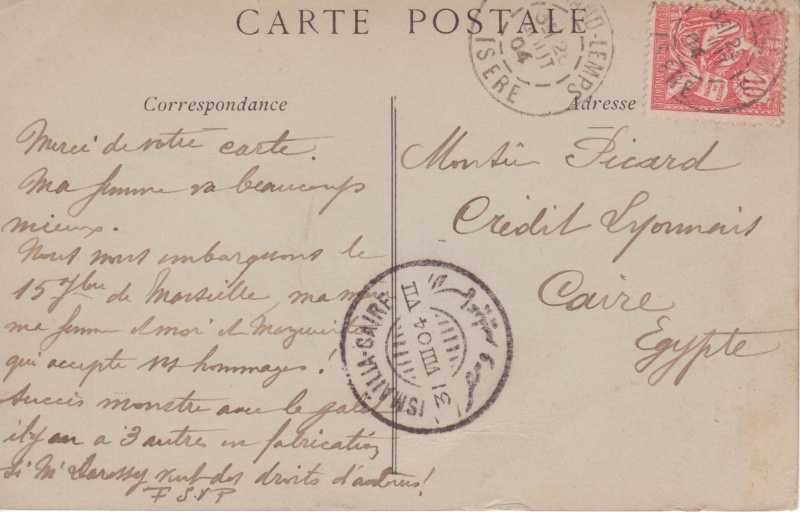 CARTE POSTALE
Correspondance
Merci de votre carte.
Ma femme va beaucoup
mieux.
Nous nous embarquons le
15 7bre de Marseille, ma mère
ma femme et moi et Marguerite
qui accepte vos hommages!
Succès monstre avec le
il y en a 3 autres en fabrication
si Mr veut des droits d'auteurs!
F SVP
Adresse
Monsieur Picard
Crédit Lyonnais
Caire
Egypte
GRAND-LEMPS
ISERE
AOUT
04
10
ISMAILIA-CAIRE
31 VIII 04 VII